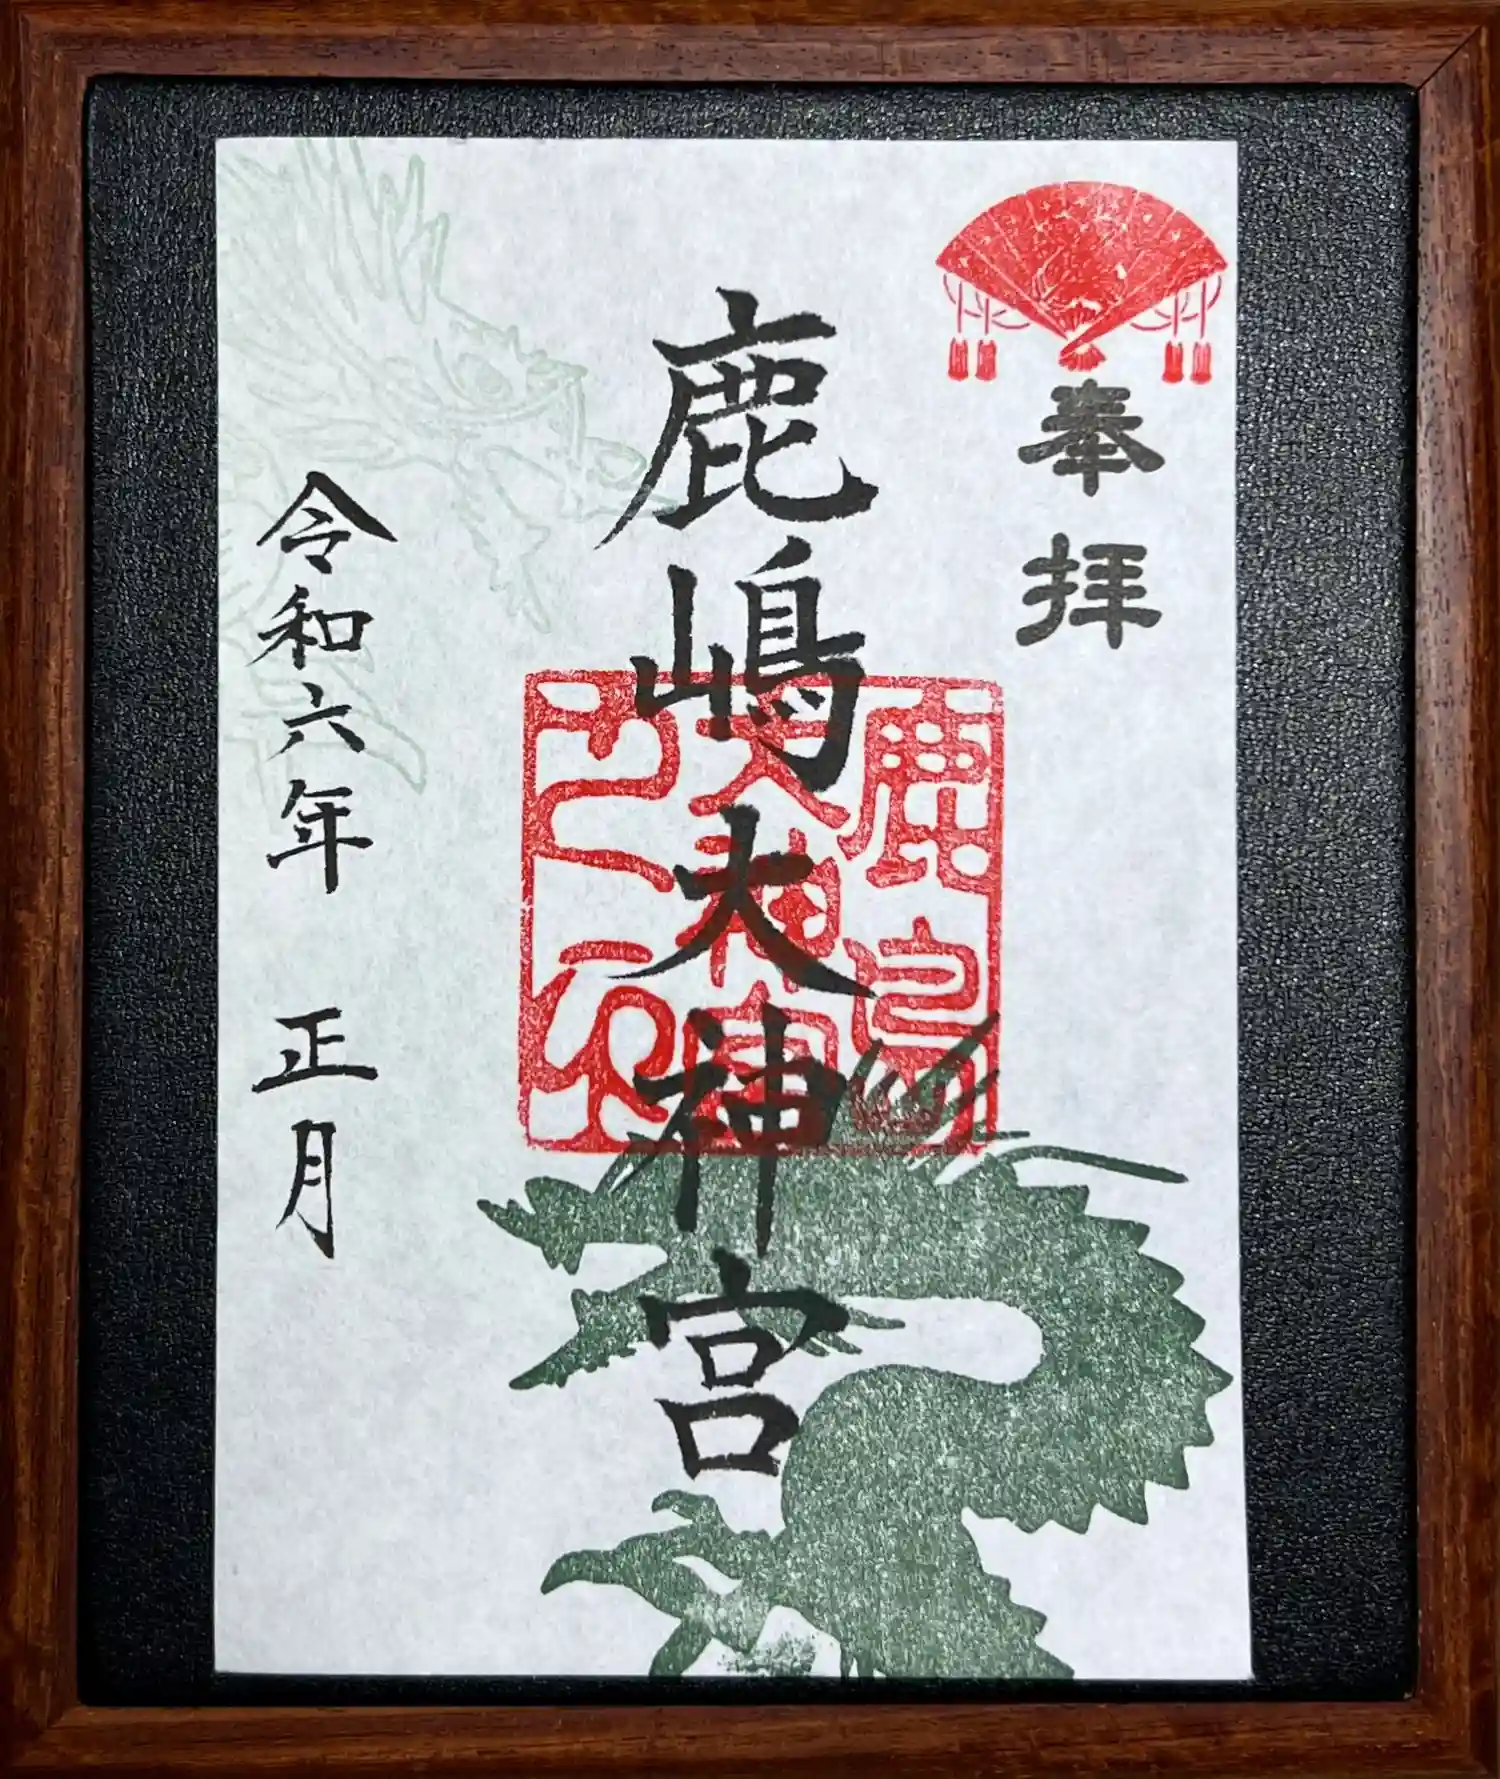 奉拝
鹿嶋大神宮
鹿島
大神宮
之印
令和六年 正月